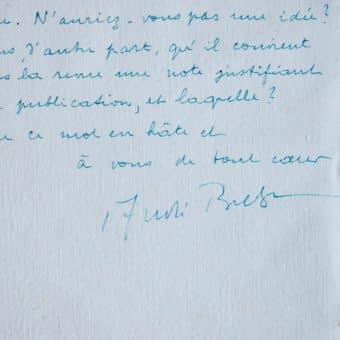 . N'auriez-vous pas une idée?
d'autre part, qu'il convient
la revue une note justifiant
publication, et laquelle?
ce mot en hâte et
à vous de tout cœur
André Breton